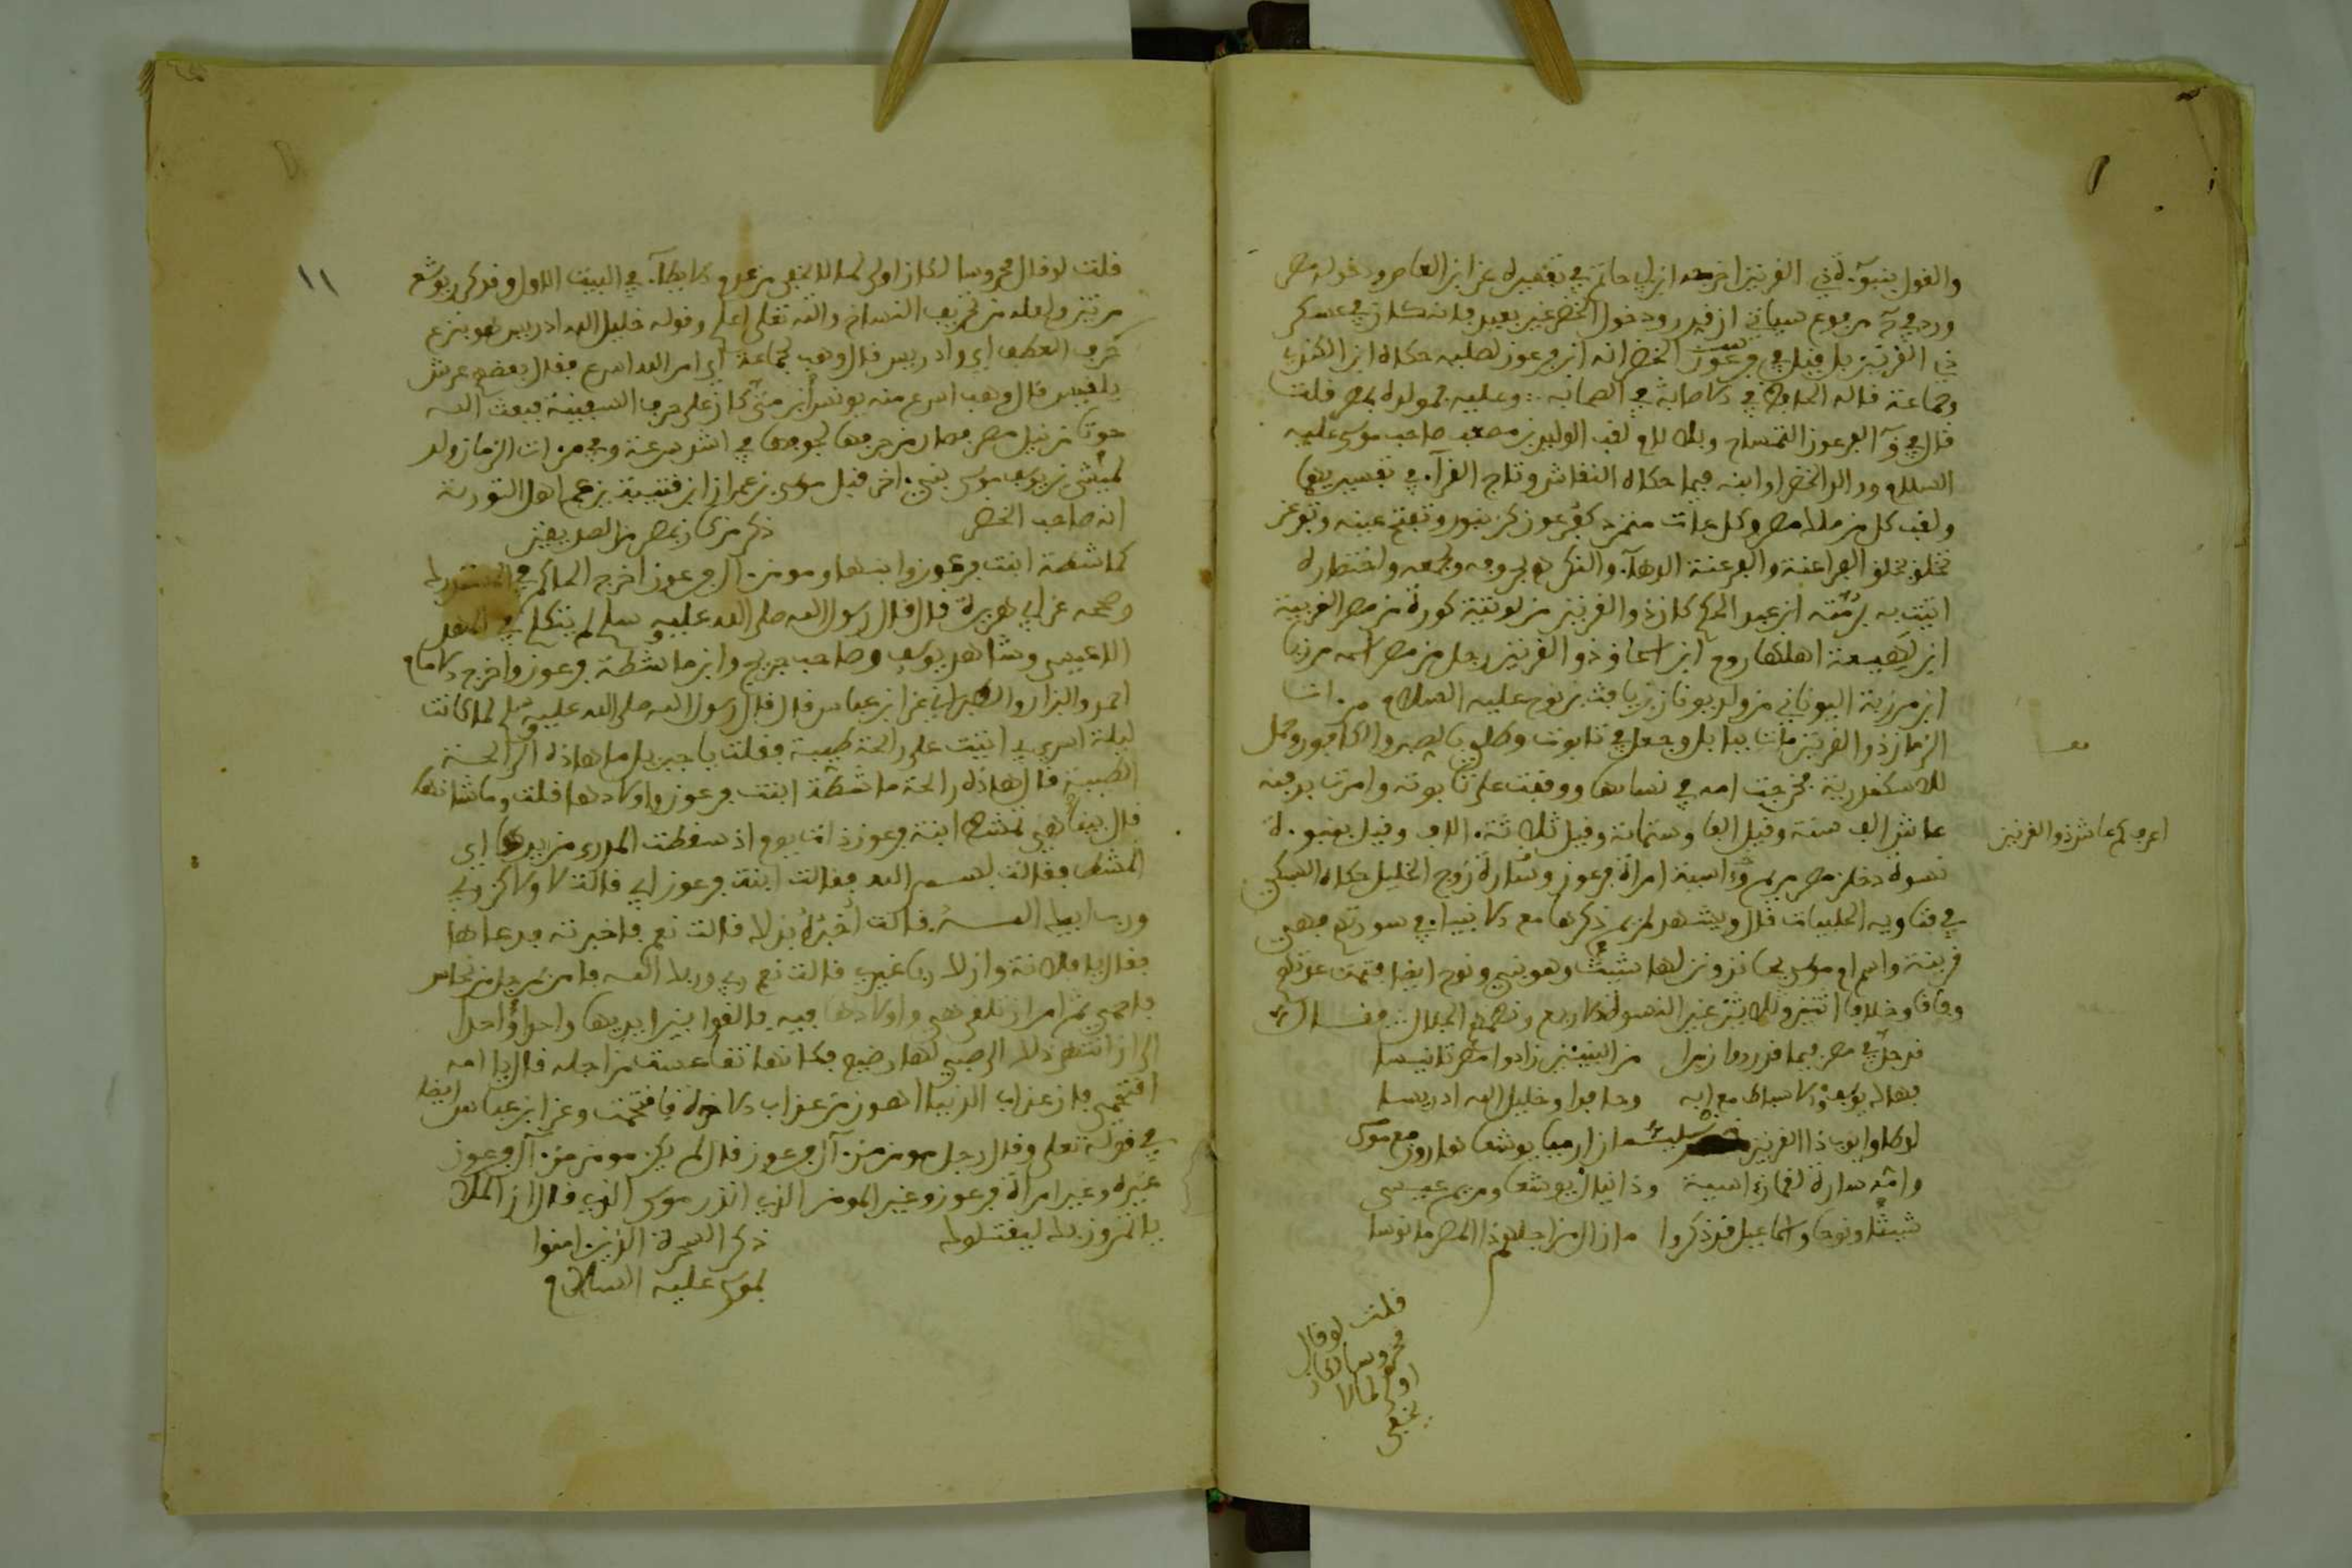 والقول بنبوءة ذي القرنين اخرجه ابن ابي حاتم في تفسيره عن ابن العاص ودخوله مصر
ورد في مرفوع سياتي از قيد رودخول الخضر غير بعيد فانه كان في عسكر
ذي القرنين بل قيل في فرعون الخضر انه ابن فرعون لصلبه حكاه ابن الكندي
وجماعة قاله الحافظ في الاصابة في الصحابه وعليه فمولده بمصر قلت
قال في ق الفرعون التمساح وبلا لام لقب الوليد بن مصعب صاحب موسى عليه
السلام ووالد الخضر او ابنه فيما حكاه النقاش وتاج القراء في تفسيريهما
ولقب كل من ملك مصر وكل عات متمرد كفرعون كزنبور وتفتح عينه وتفرعن
تخلق بخلق الفراعنة والفرعنة الدهاء والنكر
اتيت به برمته ابن عبد الحكم كان ذو القرنين من لوبية كورة من مصر الغربية
ابن لهيعة اهلها روم ابن اسحاق ذو القرنين رجل من مصر اسمه مرزبا
ابن مرزبة اليوناني من ولد يونان بن يافث بن نوح عليه السلام مرءات
الزمان ذو القرنين مات ببابل وجعل في تابوت وطلي بالصبر والكافور وحمل
للاسكندرية فخرجت امه في نسائها ووقفت على تابوته وامرت بدفنه
عاش الف سنة وقيل الفا وستمائة وقيل ثلاثة ءالاف وقيل بنبوءة
اعرف كم عاش ذو القرنين
نسوة دخلن مصر مريم وءاسية امراة فرعون وسارة زوج الخليل حكاه السبكي
في فتاويه الحلبيات قال ويشهد لمريم ذكرها مع الانبياء في سورتهم فهي
قرينة وام موسى يحانذ ونزلها شيث وهو نبي ونوح ايضا فتمت عدتهم
وفاقا وخلافا اثنين وثلاثين غير النسوة الاربع ونظمهم الجلال فقال
قد حل في مصر فيما قد رووا زمرا من النبيئين زادوا مصر تانيسا
فهاك يوسف والاسباط مع ابيه وحافدا وخليل الله ادريسا
لوطا وايوب ذا القرنين خضر سليمان ارميا يوشعا هارون مع موسى
وامه سارة لقمان ءاسية ودانيال يوشعا ومريم عيسى
شيثا ونوحا واسماعيل قد ذكروا مازال من اجلهم ذا المصر مانوسا
قلت لو قال
محروسا لكان
اولى لما لا
يخفى
١١
قلت لو قال محروسا لكان اولى لما لا يخفى من عدم الايطاء في البيت الاول وقد كرر يوشع
مرتين ولعله من تحريف النساخ والله تعلى اعلم وقوله خليل الله ادريس هو بنزع
حرف العطف اي وادريس قال وهب لجماعة اي امر الله اسرع فقال بعضهم عرش
بلقيس قال وهب اسرع منه يونس ابن متى كان على حرف السفينة فبعث الله
حوتا من نيل مصر فصار من حرفها لجوفها في اشد سرعة وفي مرءات الزمان ولد
لميشى بن يوسف موسى نبيء اخر قبل موسى بن عمران ابن قتيبة يزعم اهل التورية
انه صاحب الخضر ذكر من كان بمصر من الصديقين
كماشطة ابنت فرعون وابنها ومومن ءال فرعون اخرج الحاكم في المستدرك
وصححه عن ابي هريرة قال قال رسول الله صلى الله عليه وسلم لم يتكلم في المهد
الا عيسى وشاهد يوسف وصاحب جريج وابن ماشطة فرعون واخرج الامام
احمد والبزار والطبراني عن ابن عباس قال قال رسول الله صلى الله عليه وسلم لما كانت
ليلة اسري بي اتيت على رائحة طيبة فقلت يا جبريل ما هاذه الرائحة
الطيبة قال هاذه رائحة ماشطة ابنت فرعون واولادها قلت وما شانها
قال بينما هي تمشط ابنة فرعون ذات يوم اذ سقطت المدرى من يدها اي
المشط فقالت بسم الله فقالت ابنة فرعون ابي قالت لا ولاكن ربي
ورب ابيك الله قالت اخبره بذلك قالت نعم فاخبرته فدعاها
فقال يا فلانة وان لك ربا غيري قالت نعم ربي وربك الله فامر برجل من نحاس
فاحمي ثم امر ان تلقى هي واولادها فيه فالقوا بين ايديها واحدا واحدا
الى ان انتهى ذلك الى صبي لها رضيع فكانها تقاعست من اجله قال يا امه
اقتحمي فان عذاب الدنيا اهون من عذاب الاخرة فاقتحمت وعن ابن عباس ايضا
في قوله تعلى وقال رجل مومن من ءال فرعون قال لم يكن مومن من ءال فرعون
غيره وغير امراة فرعون وغير المومن الذي انذر موسى الذي قال ان الملأ
ياتمرون بك ليقتلوك ذكر السحرة الذين ءامنوا
بموسى عليه السلام